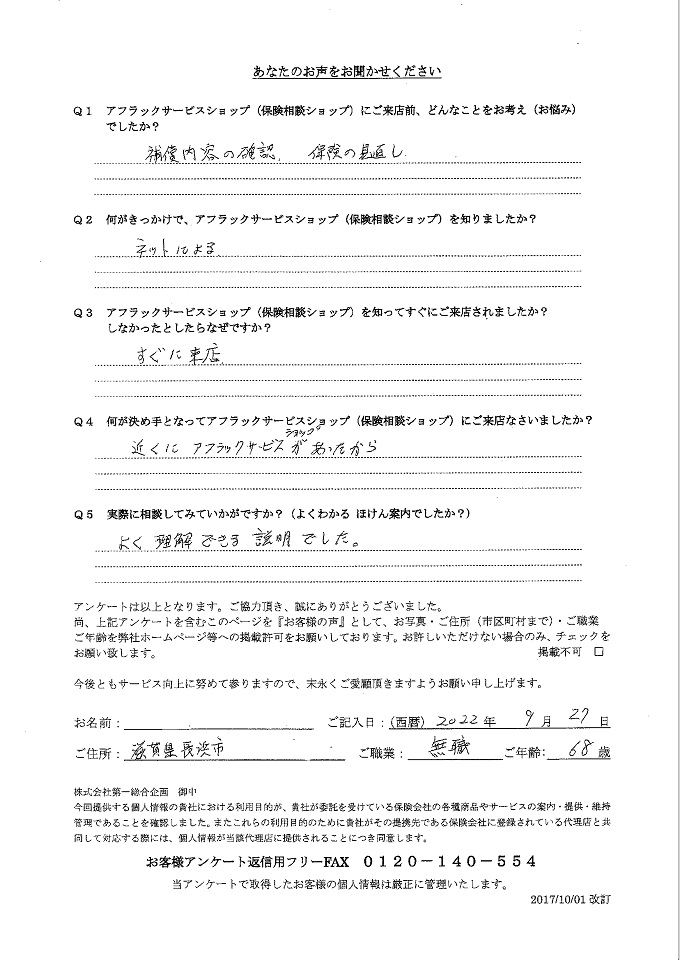 あなたのお声をお聞かせください
Q1 アフラックサービスショップ（保険相談ショップ）にご来店前、どんなことをお考え（お悩み）
でしたか？
補償内容の確認、 保険の見直し
Q2 何がきっかけで、アフラックサービスショップ（保険相談ショップ）を知りましたか？
ネットによる
Q3 アフラックサービスショップ（保険相談ショップ）を知ってすぐにご来店されましたか？
しなかったとしたらなぜですか？
すぐに来店
Q4 何が決め手となってアフラックサービスショップ（保険相談ショップ）にご来店なさいましたか？
ショップ
近くに アフラックサービスがあったから
Q5 実際に相談してみていかがですか？（よくわかる ほけん案内でしたか？）
よく理解できる説明でした。
アンケートは以上となります。ご協力頂き、誠にありがとうございました。
尚、上記アンケートを含むこのページを『お客様の声』として、お写真・ご住所（市区町村まで）・ご職業
ご年齢を弊社ホームページ等への掲載許可をお願いしております。お許しいただけない場合のみ、チェックを
お願い致します。 掲載不可 □
今後ともサービス向上に努めて参りますので、末永くご愛顧頂きますようお願い申し上げます。
お名前： ご記入日：（西暦）2022年 9月 27日
ご住所：滋賀県長浜市 ご職業：無職 ご年齢：68歳
株式会社第一総合企画 御中
今回提供する個人情報の貴社における利用目的が、貴社が委託を受けている保険会社の各種商品やサービスの案内・提供・維持
管理であることを確認しました。またこれらの利用目的のために貴社がその提携先である保険会社に登録されている代理店と共
同して対応する際には、個人情報が当該代理店に提供されることにつき同意します。
お客様アンケート返信用フリーFAX ０１２０－１４０－５５４
当アンケートで取得したお客様の個人情報は厳正に管理いたします。
2017/10/01 改訂